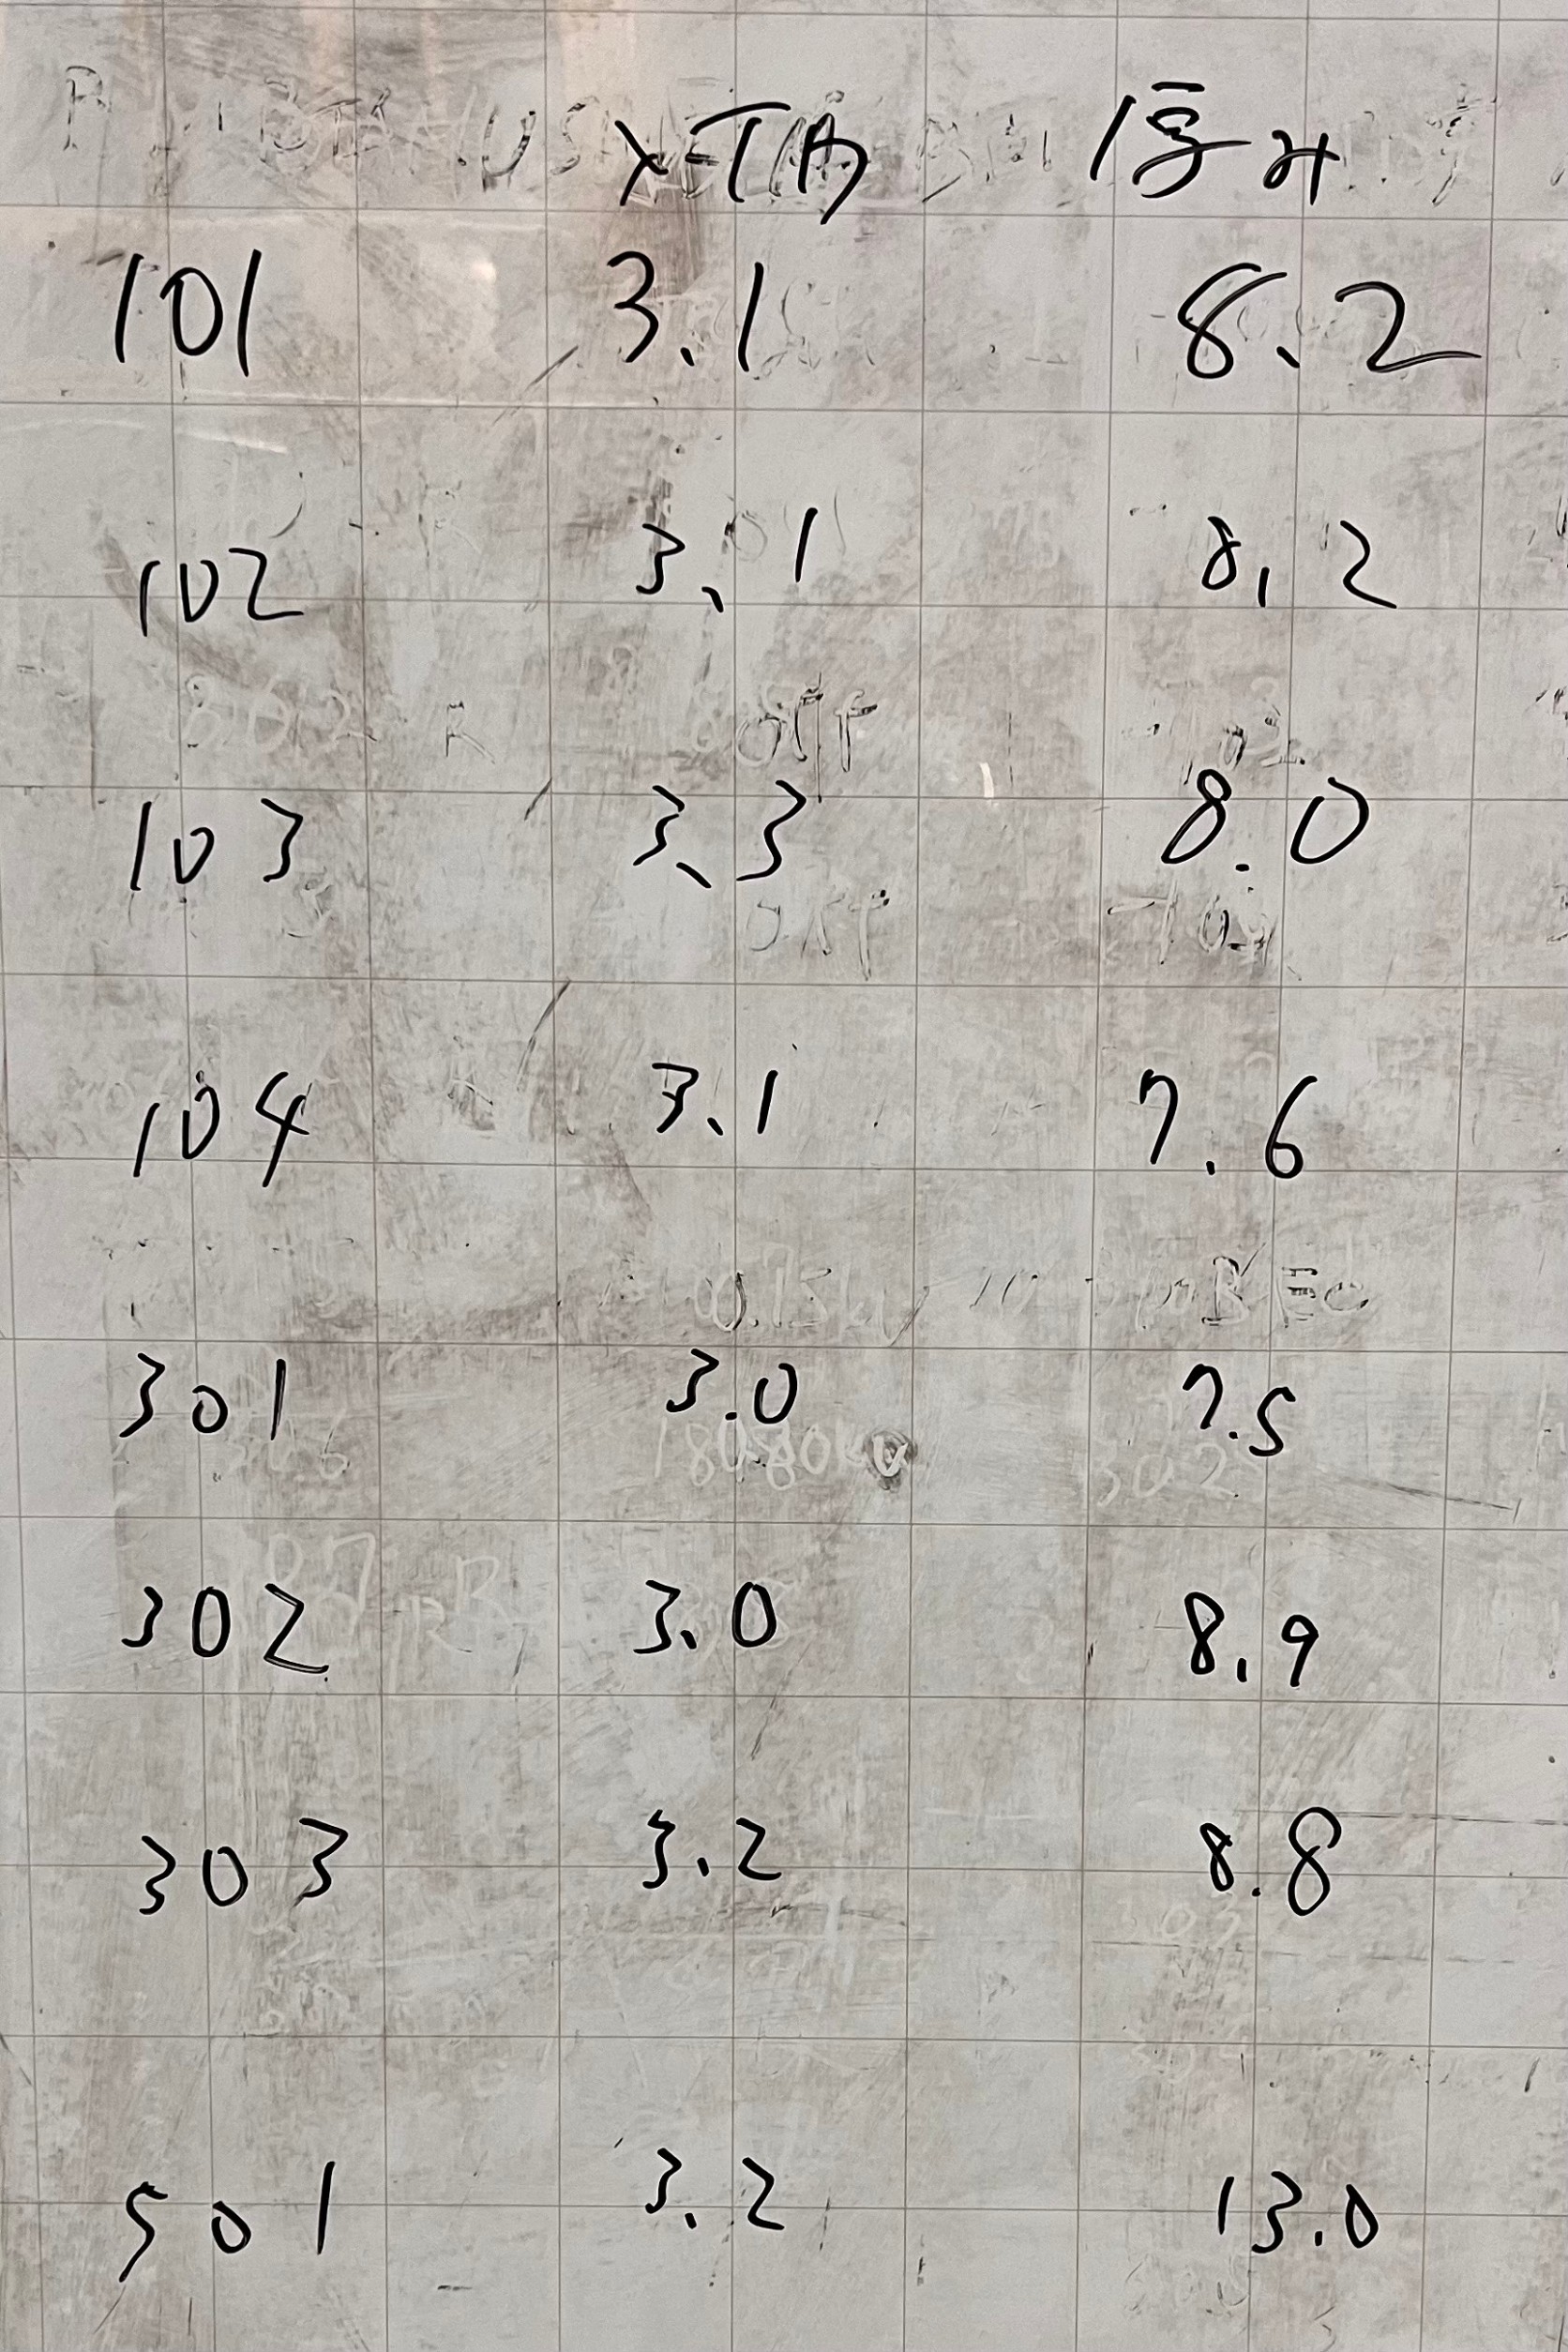 厚み
101 3.1 8.2
102 3.1 8.2
103 3.3 8.0
104 3.1 7.6
301 3.0 7.5
302 3.0 8.9
303 3.2 8.8
501 3.2 13.0